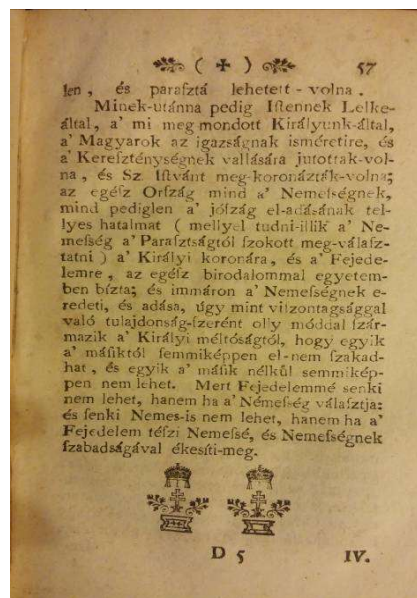 ( ✠ ) 57
len, és paraſztá lehetett-volna.
Minek-utánna pedig Iſtennek Lelke-
által, a' mi meg-mondott Királyunk-által,
a' Magyarok az igazságnak isméretire, és
a' Kereſzténységnek vallására jutottak-vol-
na, és Sz. Iſtvánt meg-koronázták-volna;
az egéſz Orſzág mind a' Nemeſségnek,
mind pediglen a' jóſzág el-adásának tel-
lyes hatalmat ( mellyel tudni-illik a' Ne-
meſség a' Paraſztságtól ſzokott meg-válaſz-
tatni ) a' Királyi koronára, és a' Fejede-
lemre, az egéſz birodalommal egyetem-
ben bízta; és immáron a' Nemeſségnek e-
redeti, és adása, úgy mint viſzontagsággal
való tulajdonság-ſzerént olly móddal ſzár-
mazik a' Királyi méltóságtól, hogy egyik
a' máſiktól ſemmiképpen el-nem ſzakad-
hat, és egyik a' máſik nélkűl semmikép-
pen nem lehet. Mert Fejedelemmé senki
nem lehet, hanem ha a' Némeſség válaſztja:
és ſenki Nemes-is nem lehet, hanem ha a'
Fejedelem téſzi Nemeſsé, és Nemeſségnek
ſzabadságával ékesíti-meg.
D 5 IV.